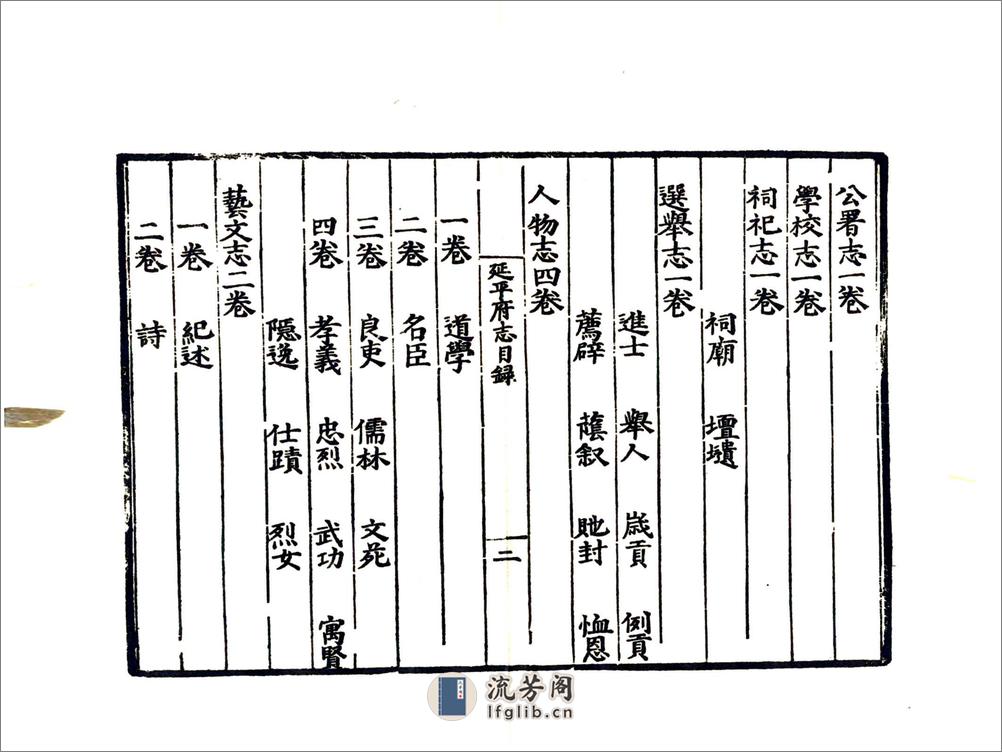 公署志一卷
學校志一卷
祠祀志一卷
祠廟 壇壝
選舉志一卷
進士 舉人 歲貢 例貢
薦辟 蔭叙 貤封 恤恩
人物志四卷
延平府志目録 二
一卷 道學
二卷 名臣
三卷 良吏 儒林 文苑
四卷 孝義 忠烈 武功 寓賢
隱逸 仕蹟 烈女
藝文志二卷
一卷 紀述
二卷 詩
流芳阁
lfglib.cn